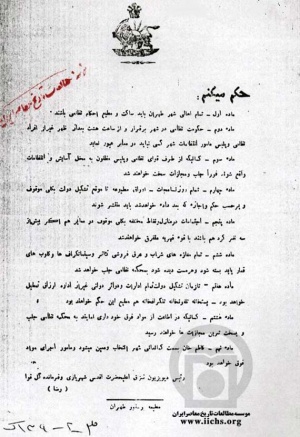 حکم میکنم:
ماده اول - تمام اهالی شهر طهران باید ساکت و مطیع احکام نظامی باشند
ماده دوم - حکومت نظامی در شهر برقرار و از ساعت هشت بعد از ظهر غیر از افراد
نظامی و پلیس مأمور انتظامات شهر کسی نباید در معابر عبور نماید
ماده سوم - کسانیکه از طرف قوای نظامی و پلیس مظنون به مخل آسایش و انتظامات
واقع شوند فوراً جلب و مجازات سخت خواهند شد
ماده چهارم - تمام روزنامجات، اوراق مطبوعه تا موقع تشکیل دولت بکلی موقوف
و برحسب حکم و اجازه که بعد داده خواهد شد باید منتشر شوند
ماده پنجم - اجتماعات در منازل و نقاط مختلفه بکلی موقوف در معابر هم اگر بیش از
سه نفر گرد هم باشند با قوه قهریه متفرق خواهند شد
ماده ششم - تمام مغازه های شراب و عرق فروشی تئاتر و سینماتگراف ها و کلوب های
قمار باید بسته شود و هر مست دیده شود بمحکمه نظامی جلب خواهد شد
ماده هفتم - تا زمان تشکیل دولت تمام ادارات و دوائر دولتی غیر از اداره ارزاق تعطیل
خواهد بود - پستخانه تلفونخانه تلگرافخانه هم مطیع این حکم خواهند بود
ماده هشتم - کسانیکه در اطاعت از مواد فوق خود داری نمایند به محکمه نظامی جلب
و بسخت ترین مجازات ها خواهند رسید
ماده نهم - کاظم خان بسمت کماندانی شهر انتخاب و معین میشود و مأمور اجرای مواد
فوق خواهد بود
رئیس دیویزیون قزاق اعلیحضرت اقدس شهریاری و فرمانده کل قوا
(رضا)
مطبعه طهران
موسسه مطالعات تاریخ معاصر ایران
www.iichs.org